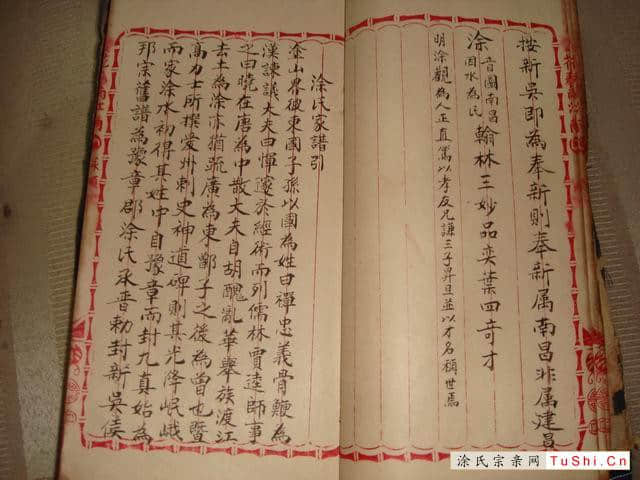 按新吳即為奉新則奉新属南昌非属建昌
涂 音圖南昌因水為氏 翰林三妙品奕葉四奇才
明涂觀為人正直篤以孝友兄謙三子昇旦並以才名稱世焉
涂氏家譜引
塗山畧彼東國子孫以國為姓曰禪忠義骨鯁為
漢諫議大夫曰惲邃於經術而列儒林賈逵師事
之曰曉在唐為中散大夫自胡醜亂華舉族渡江
去土為涂亦猶疏廣為東鄫子之後為曾也暨
高力士所撰爱州刺史神道碑則其先降岷峨
而家涂水初得其姓中自豫章而封九真始為
邦宗舊譜為豫章郡涂氏承晋勅封新吳侯
涂氏宗亲网 TuShi.Cn